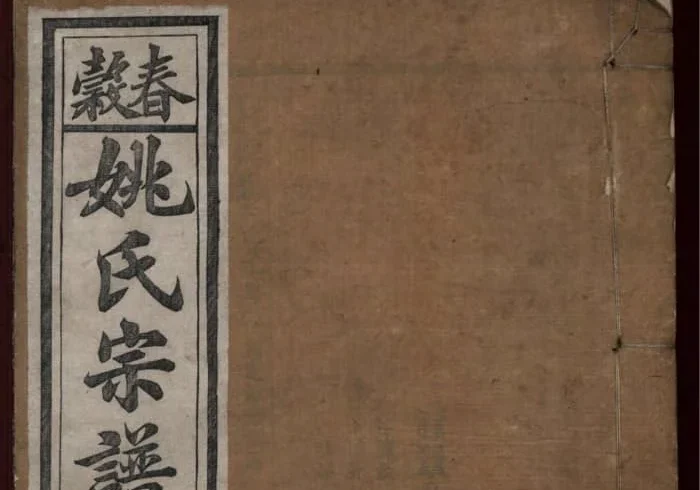 春穀
姚氏宗譜